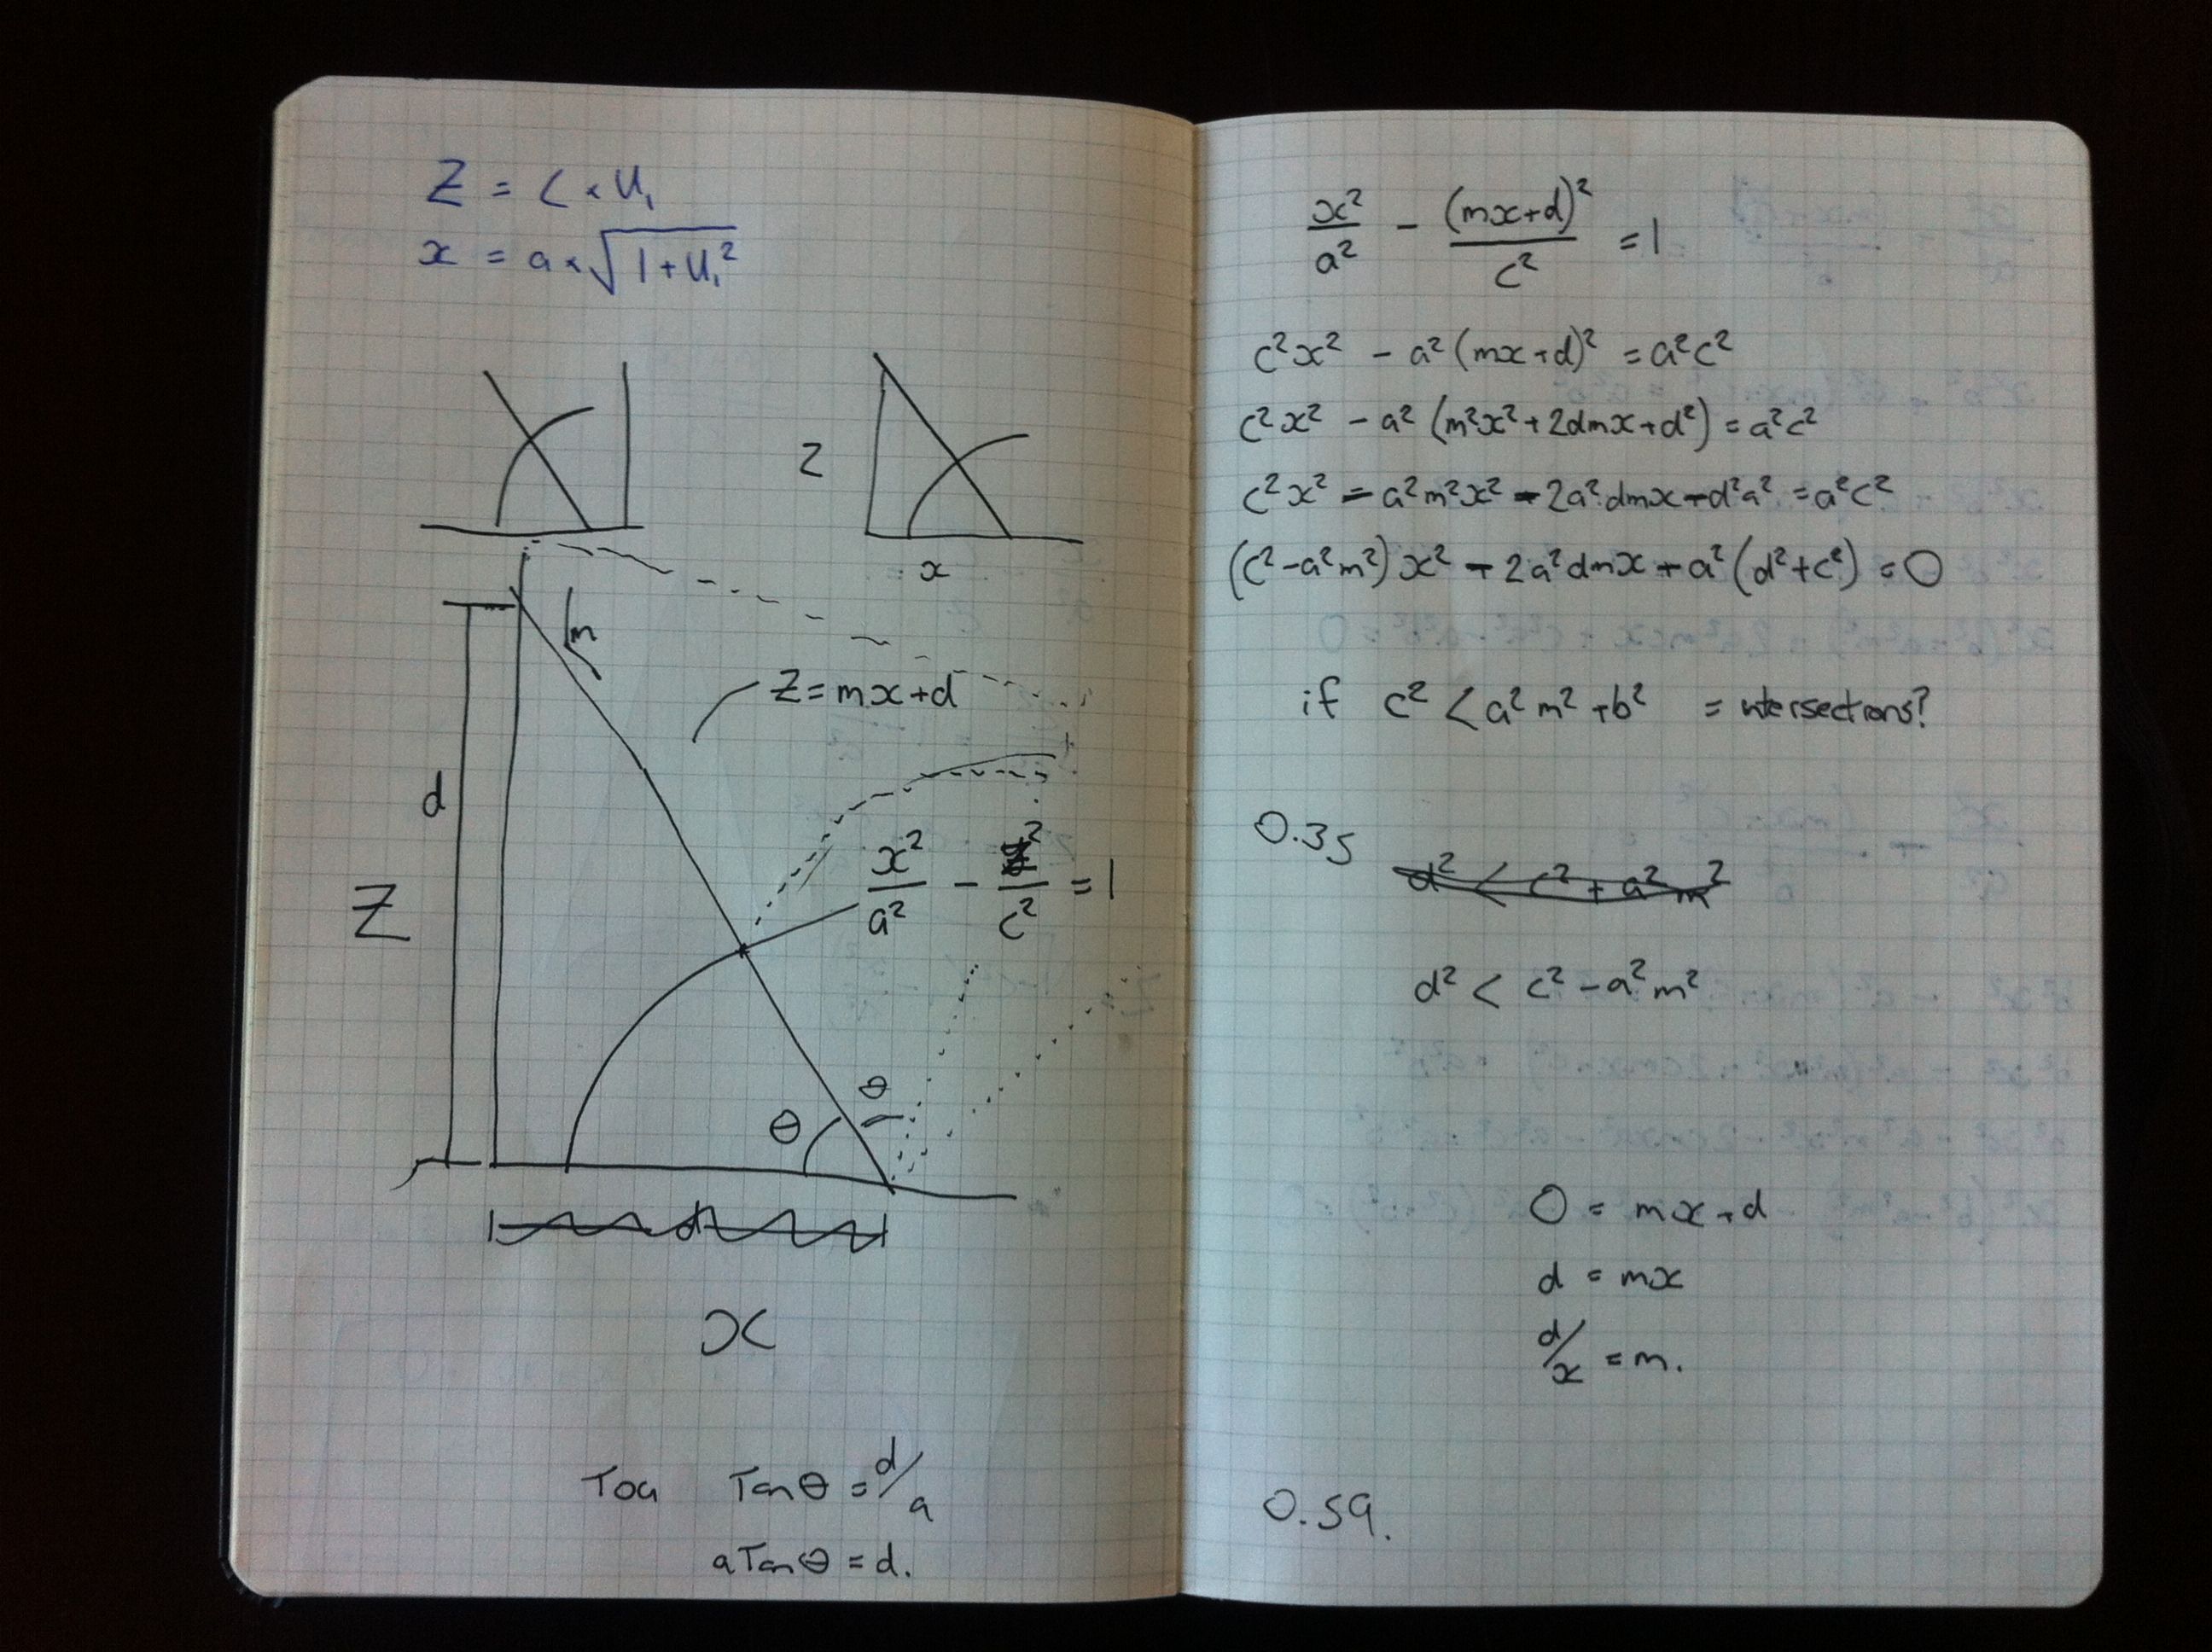 Z = C × U₁
x = a × √(1+U₁²)
Z
x
m
Z = mx+d
d
x²/a² − z²/c² = 1
Z
θ
θ
d
x
Toa Tanθ = d/a
aTanθ = d.
x²/a² − (mx+d)²/c² = 1
c²x² − a²(mx+d)² = a²c²
c²x² − a²(m²x²+2dmx+d²) = a²c²
c²x² − a²m²x² − 2a²dmx − d²a² = a²c²
(c²−a²m²)x² − 2a²dmx + a²(d²+c²) = 0
if c² < a²m² + b² = intersections?
0.35
d² < c² + a²m²
d² < c² − a²m²
0 = mx+d
d = mx
d/x = m.
0.59.